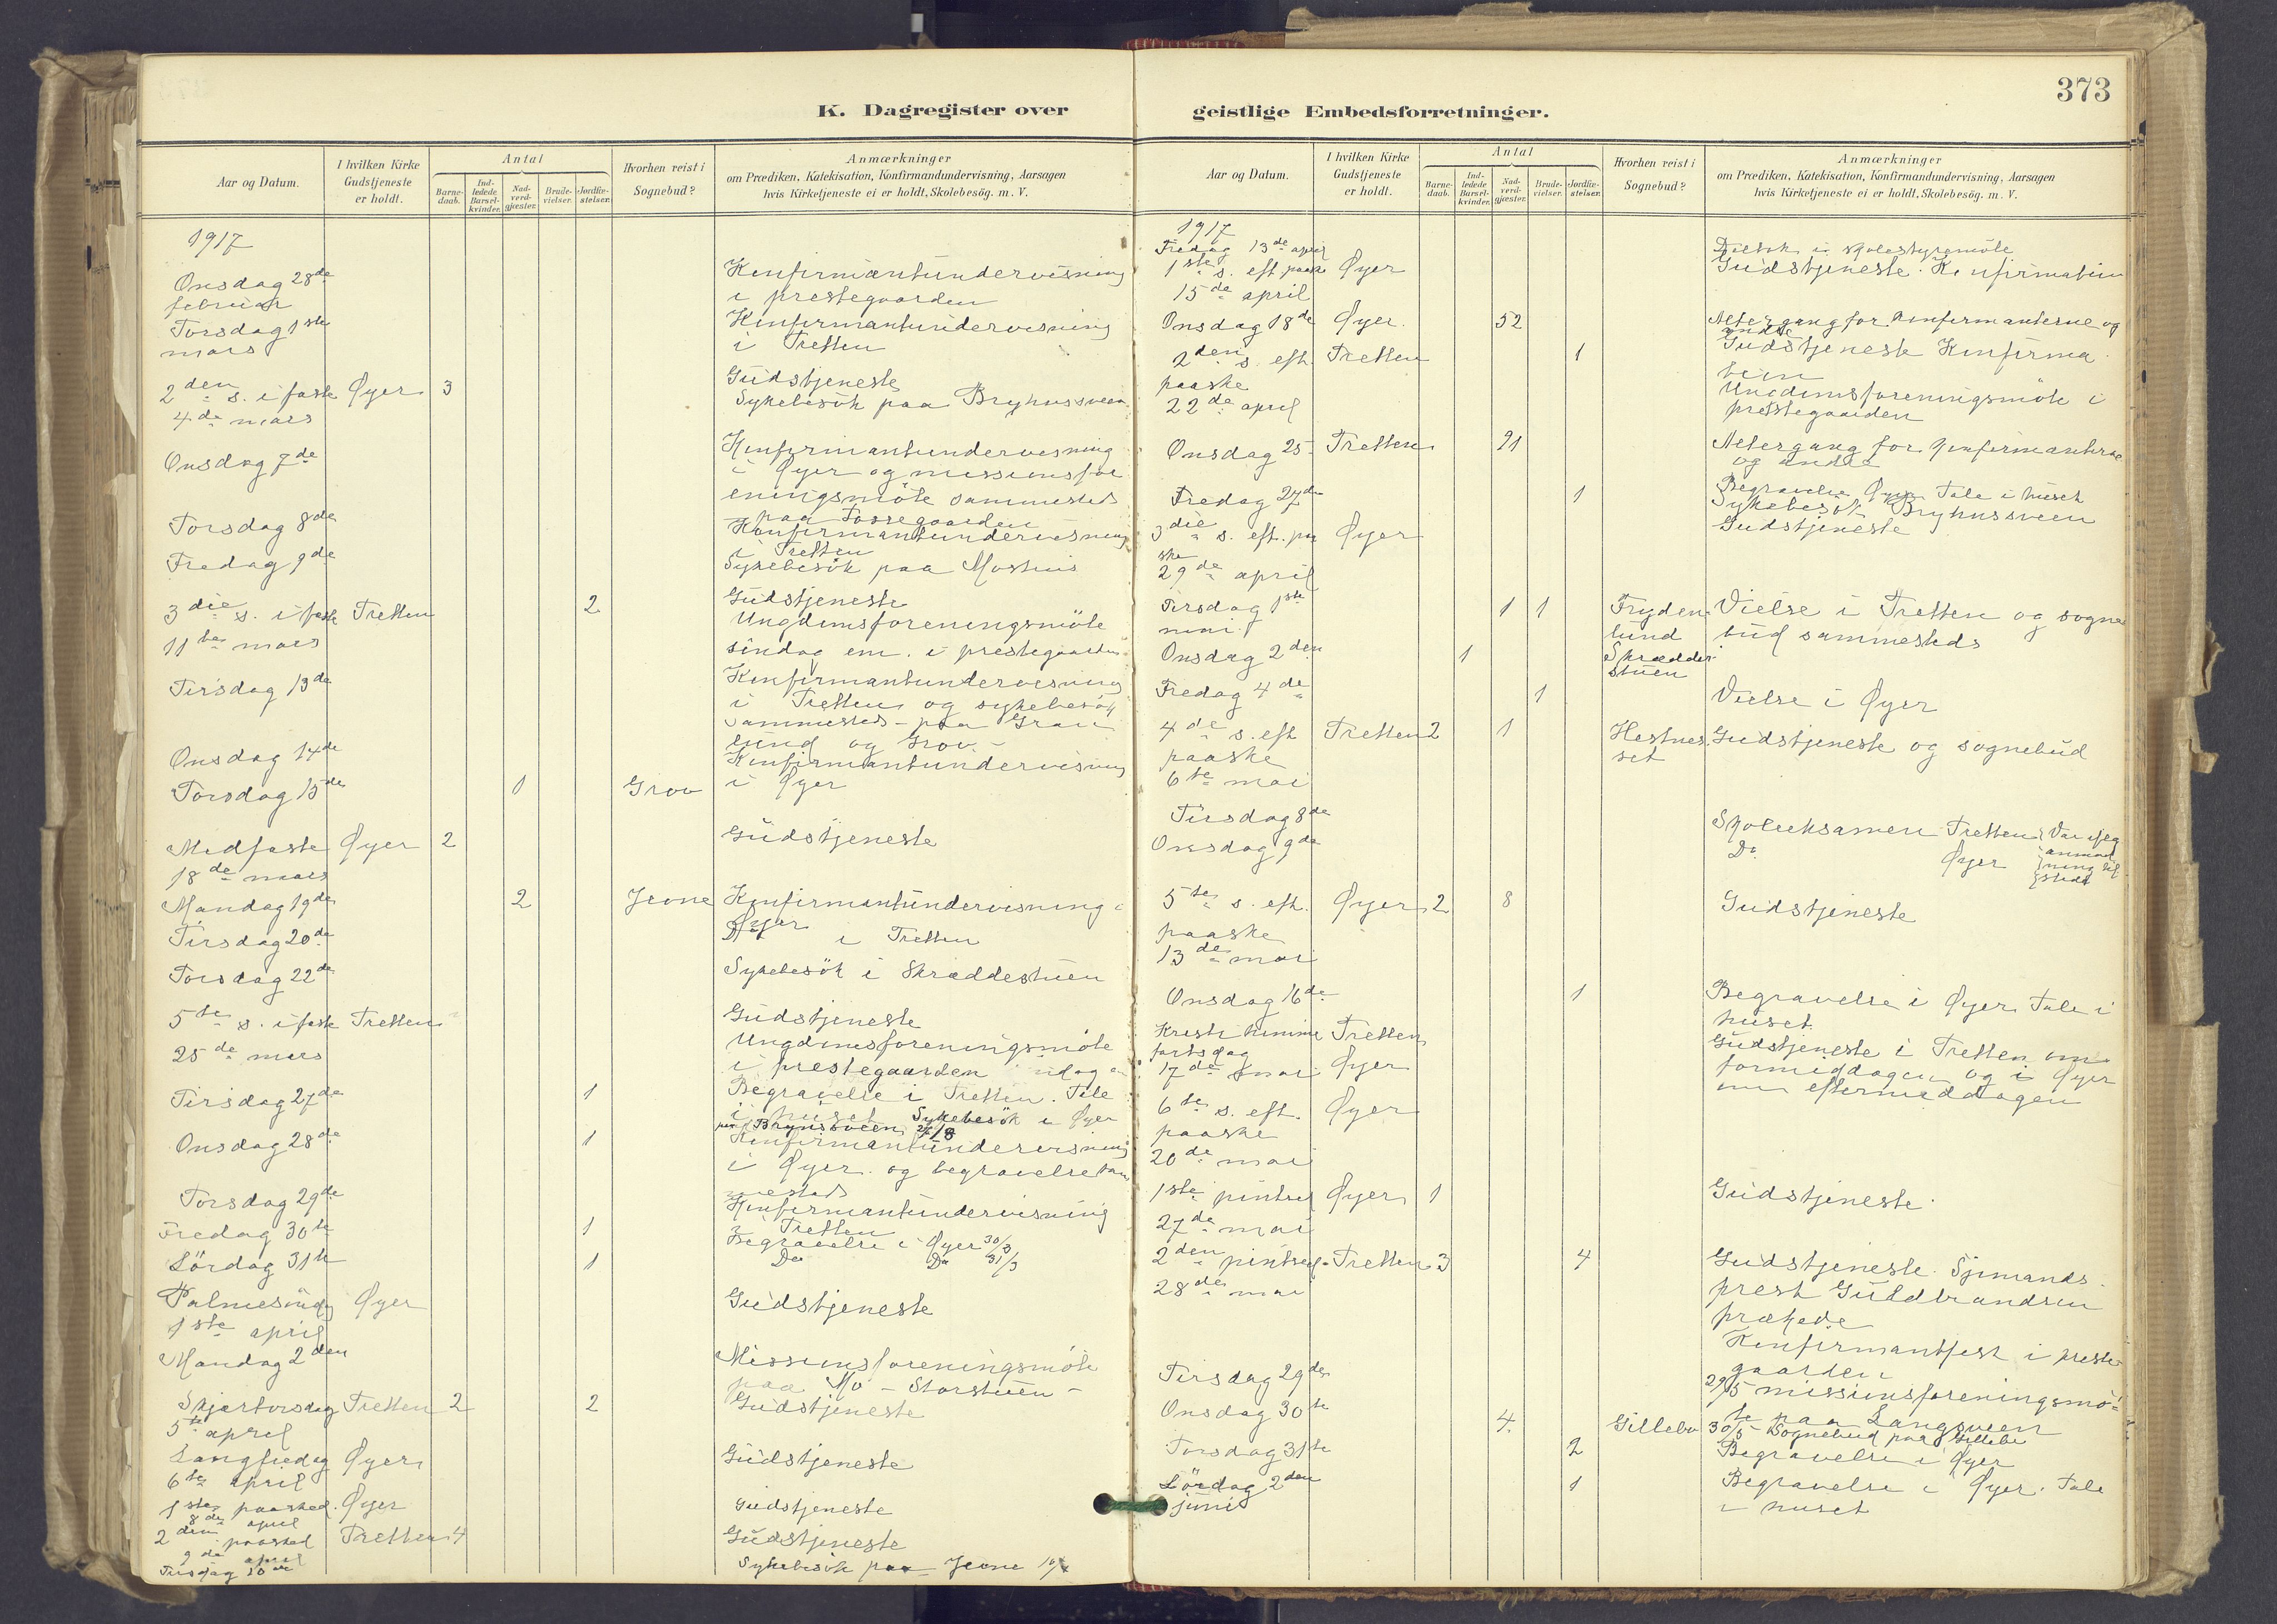 373
K. Dagregister over
geistlige Embedsforretninger.
Aar og Datum.
I hvilken Kirke
Gudstjeneste
er holdt.
Antal
Barne-
daab.
Ind-
ledede
Barsel-
kvinder.
Nad-
verd-
gjæster.
Brude-
vielser.
Jordfæ-
stelser.
Hvorhen reist i
Sognebud?
Anmærkninger
om Prædiken, Katekisation, Konfirmandundervisning, Aarsagen
hvis Kirketjeneste ei er holdt, Skolebesög. m. V.
1917
Onsdag 28de Konfirmantundervisning
februar i prestegaarden
Torsdag 1ste Konfirmantundervisning
mars i Tretten
2den s. i faste Øyer 3 Gudstjeneste
4de mars Sykebesök paa Bryhussveen
Onsdag 7de Konfirmantundervisning
i Øyer og missionsfor
eningsmöte sammesteds
paa Fossegaarden
Torsdag 8de Konfirmantundervisning
i Tretten
Fredag 9de Sykebesök paa Moshus
3die s. i faste Tretten 2 Gudstjeneste
11te mars Ungdomsforeningsmöte
söndag em. i prestegaarden
Tirsdag 13de Konfirmantundervisning
i Tretten og sykebesök
sammesteds - paa Gran
lund og Grov. -
Onsdag 14de Konfirmantundervisning
i Øyer
Torsdag 15de 1 Grov
Midfaste Øyer 2 Gudstjeneste
18de mars
Mandag 19de 2 Jevne Konfirmantundervisning i
Øyer
Tirsdag 20de Do i Tretten
Torsdag 22de Sykebesök i Skræddestuen
5te s. i faste Tretten Gudstjeneste
25de mars Ungdomsforeningsmöte
i prestegaarden
Tirsdag 27de 1 Begravelse i Tretten. Tale
i huset Sykebesök i Øyer
Onsdag 28de 1 Konfirmantundervisning
i Øyer og begravelse sam
mesteds
Torsdag 29de Konfirmantundervisning
i Tretten
Fredag 30te 1 Begravelse i Øyer 30/3
Lördag 31te 1 Do Do 31/3
Palmesöndag Øyer Gudstjeneste
1ste april
Mandag 2den Missionsforeningsmöte
paa Mo - Storstuen -
Skjærtorsdag Tretten 2 2 Gudstjeneste
5te april
Langfredag Øyer Gudstjeneste
6te april
1ste paasked. Øyer Gudstjeneste
8de april
2den paasked Tretten 4 Gudstjeneste
9de april
Tirsdag 10de Sykebesök paa Jevne 10/4
Aar og Datum.
I hvilken Kirke
Gudstjeneste
er holdt.
Antal
Barne-
daab.
Ind-
ledede
Barsel-
kvinder.
Nad-
verd-
gjæster.
Brude-
vielser.
Jordfæ-
stelser.
Hvorhen reist i
Sognebud?
Anmærkninger
om Prædiken, Katekisation, Konfirmandundervisning, Aarsagen
hvis Kirketjeneste ei er holdt, Skolebesög. m. V.
1917
Fredag 13de april Deltok i skolestyremöte
1ste s. eft paaske Øyer Gudstjeneste. Konfirmation
15de april
Onsdag 18de Øyer. 52 Altergang for konfirmanterne og
andre
2den s. eft. Tretten 1 Gudstjeneste Konfirma
paaske tion
22de april Ungdomsforeningsmöte i
prestegaarden
Onsdag 25 Tretten 91 Altergang for konfirmanterne
og andre
Fredag 27de 1 Begravelse Øyer Tale i huset
Sykebesök Bryhussveen
3die s. eft. paa Øyer Gudstjeneste
ske
29de april
Tirsdag 1ste 1 1 Fryden- Vielse i Tretten og sogne
mai. lund bud sammesteds
Onsdag 2den 1 Skrædder-
stuen
Fredag 4de 1 Vielse i Øyer
4de s. eft Tretten 2 1 Hestnes- Gudstjeneste og sognebud
paaske set
6te mai
Tirsdag 8de Skoleeksamen Tretten Var efter
Onsdag 9de Do. Øyer anmod
ning til
stede
5te s. eft. Øyer 2 8 Gudstjeneste
paaske
13de mai
Onsdag 16de 1 Begravelse i Øyer Tale i
huset.
Kristi himmel Tretten Gudstjeneste i Tretten om
fartsdag formiddagen og i Øyer
17de mai Øyer om eftermiddagen
6te s. eft. Øyer
paaske
20de mai
1ste pintsed Øyer 1 Gudstjeneste.
27de mai
2den pintsed. Tretten 3 4 Gudstjeneste. Sjömands-
28de mai prest Guldbrandsen
prækede
Konfirmantfest i preste-
gaarden
Tirsdag 29de 29/5 missionsforeningsmö-
te paa Langsveen
Onsdag 30te 4. Gillebo 30/5 Sognebud paa Gillebo
Torsdag 31te 2 Begravelse i Øyer
Lördag 2den 1 Begravelse i Øyer. Tale
juni i huset